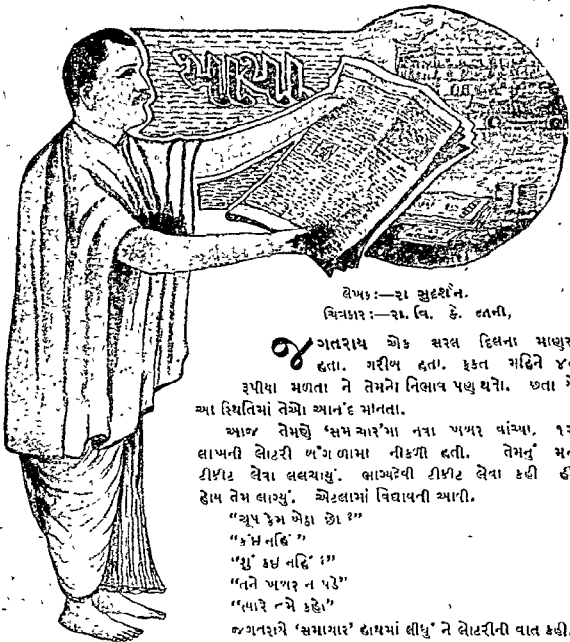 આશા
લેખક:—રા સુદર્શન.
ચિત્રકાર:—રા. વિ. કે. જાની,
જગતરાય એક સરલ દિલના માણસ
હતા. ગરીબ હતા. ફકત મહિને ૪૦
રૂપીયા મળતા ને તેમનો નિભાવ પણ થતો. છતા
આ સ્થિતિમાં તેઓ આનંદ માનતા.
આજ તેમણે ‘સમાચાર’માં નવા ખબર વાંચ્યા.
લાખની લોટરી બંગાળામાં નીકળી હતી. તેમનું મન
ટીકીટ લેવા લલચાયું. ભાગ્યદેવી ટીકીટ લેવા કહી
હોય તેમ લાગ્યું. એટલામાં વિદ્યાવતી આવી.
“ચૂપ કેમ બેઠા છો ?”
“કંઇ નહિં ”
“શું કંઇ નહિં ?”
“તને ખબર ન પડે”
“ત્યારે તમે કહો”
જગતરાયે ‘સમાચાર’ હાથમાં લીધું ને લોટરીની વાત કહી.